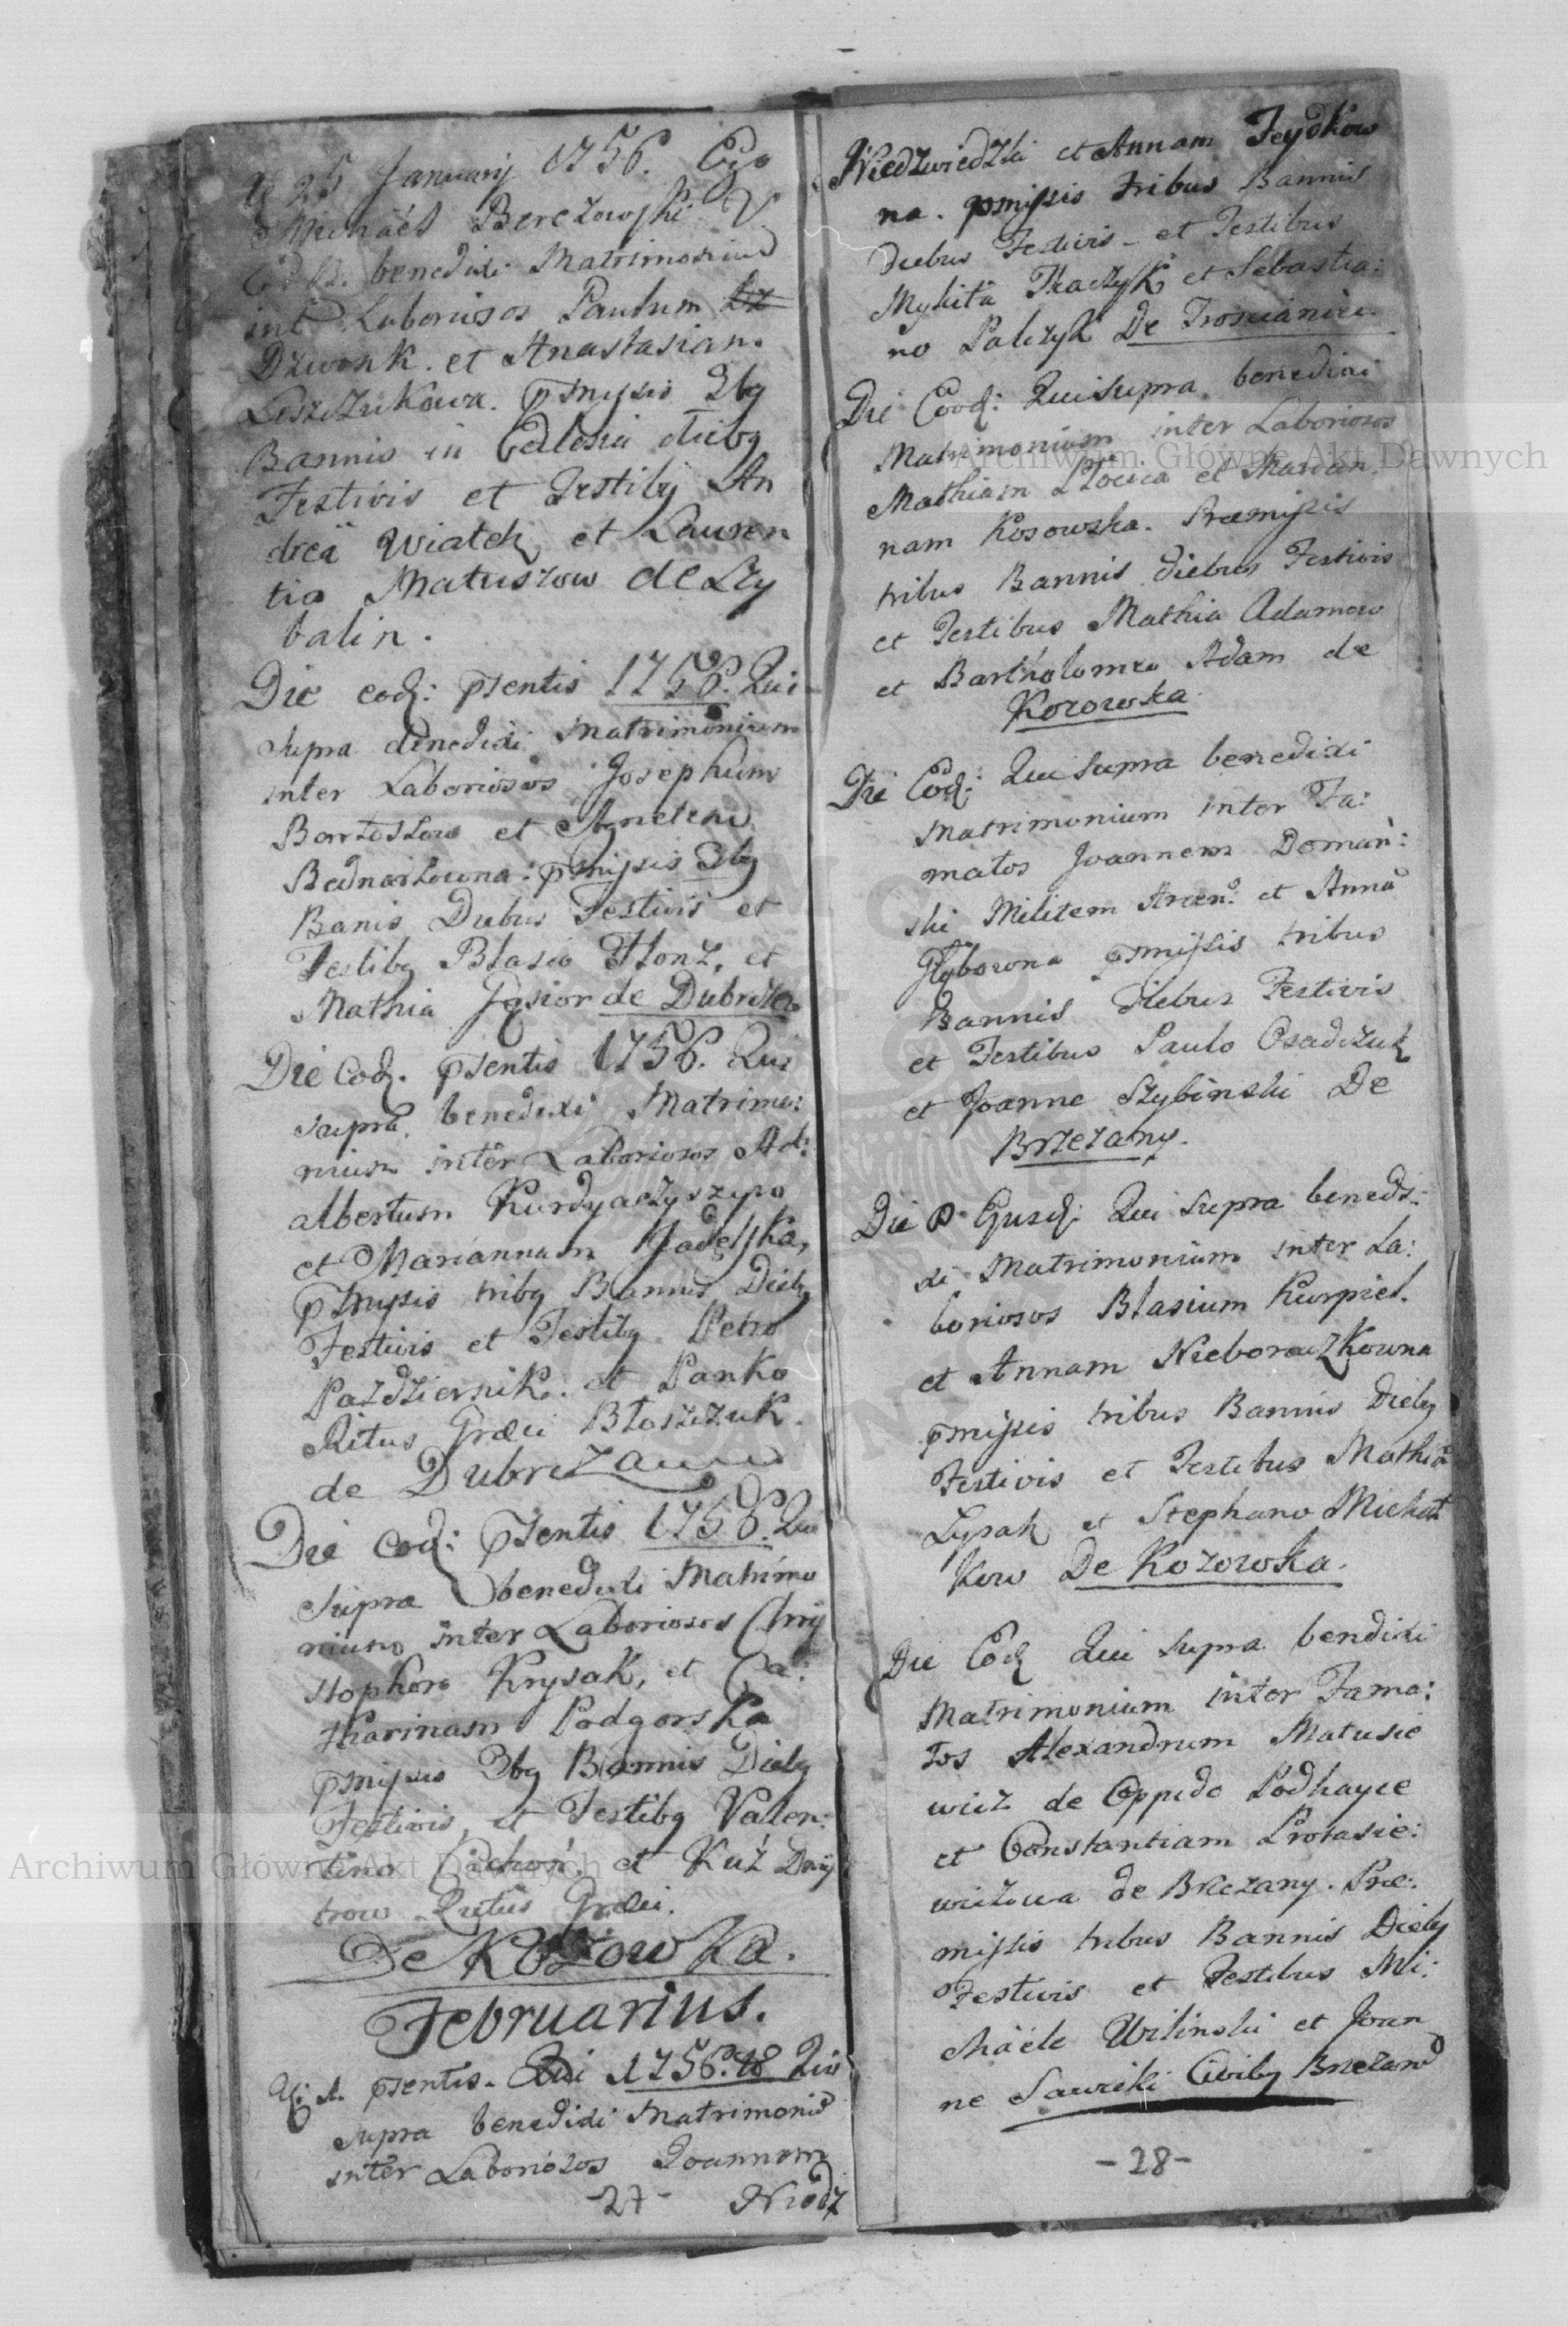 25 Januarij 1756. Ego
Michaël Berezowski V
benedixi Matrimonium
int Laboriosos Paulum
Dzwonk. et Anastasiam.
Leszczukowa. pmissis 3bg
Bannis in Ecclesia diebg
Festivis et Testibg An
dreä Wiatek et Lauren
tio Matuszow de Ry
balin.
Die eod: psentis 1756. Qui
supra benedixi Matrimonium
inter Laboriosos Josephum
Bartoszow et Agnetem
Bednarzowna: pmissis 3bg
Banis Diebus Festivis et
Testibg Blasio Slonz, et
Mathia Gąsior de Dubrzcze
Die Eod. psentis 1756. Qui
supra benedixi Matrimo:
nium inter Laboriosos Ad:
albertum Kurdyaczyszyn
et Mariannam
pmissis tribg Bannis Diebg
Festivis et Testibg Petro
Pazdziernik. et Panko
Ritus Græci Błaszczuk.
de
Die eod: psentis 1756. Qui
supra benedixi Matrimo
nium inter Laboriosos Chry
stophoro Krysak, et Ca:
tharinam Podgorska
pmissis 3bg Bannis Diebg
Festivis, et Testibg Valen:
tino Cichon et Kuź Dmy
trow Ritus Græci.
De Kozowka.
Februarius.
psentis. 1756. Qui
supra benedixi Matrimoniū
inter Laboriosos Joannem
-27- Niedz
Niedzwiedzki et Annam Feydkow
na. pmissis tribus Bannis
diebus Festivis et Testibus
Mykitä Tkaczyk et Sebastia:
no Palczyk De Troscianice.
Die Eod: Qui supra benedixi
Matrimonium inter Laboriosos
Mathiam et Marian:
nam Kosowska. Præmissis
tribus Bannis diebus Festivis
et Testibus Mathia Adamow
et Bartholomeo Adam de
Kozowka
Die Eod: Qui supra benedixi
Matrimonium inter Fa:
matos Joannem Doman:
ski Militem et Annā
Hyborona pmissis tribus
Bannis diebus Festivis
et Testibus Paulo Osadczuk
et Joanne Rybinski De
Brzezany.
Die Ejusd: Qui supra benedi:
xi Matrimonium inter La:
boriosos Blasium Kurpiel.
et Annam Nieboraczkowna
pmissis tribus Bannis Diebg
Festivis et Testibus Mathiā
Lysak et Stephano Michał
kow De Kozowka.
Die Eod Qui supra bendixi
Matrimonium inter Fama:
tos Alexandrum Matusie
wicz de Oppido Podhayce
et Constantiam Protasie:
wiczowa de Brzezany. Præ:
missis tribus Bannis Diebg
Festivis et Testibus Mi:
chaële Wilinski et Joan
ne Sawicki Civibg Brzezanī
-28-
Archiwum Główne Akt Dawnych
Archiwum Główne Akt Dawnych